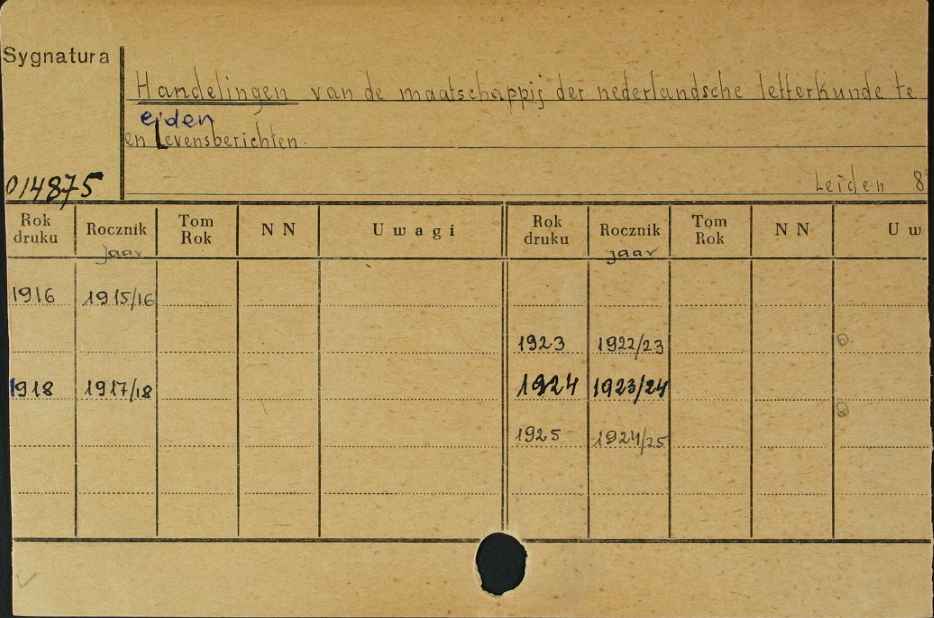 Sygnatura
Handelingen van de maatschappij der nederlandsche letterkunde te
eiden
en Levensberichten.
014875
Leiden 8
Rok druku Rocznik Tom Rok NN Uwagi Rok druku Rocznik Tom Rok NN Uw
jaar jaar
1916 1915/16
1923 1922/23
1918 1917/18 1924 1923/24
1925 1924/25